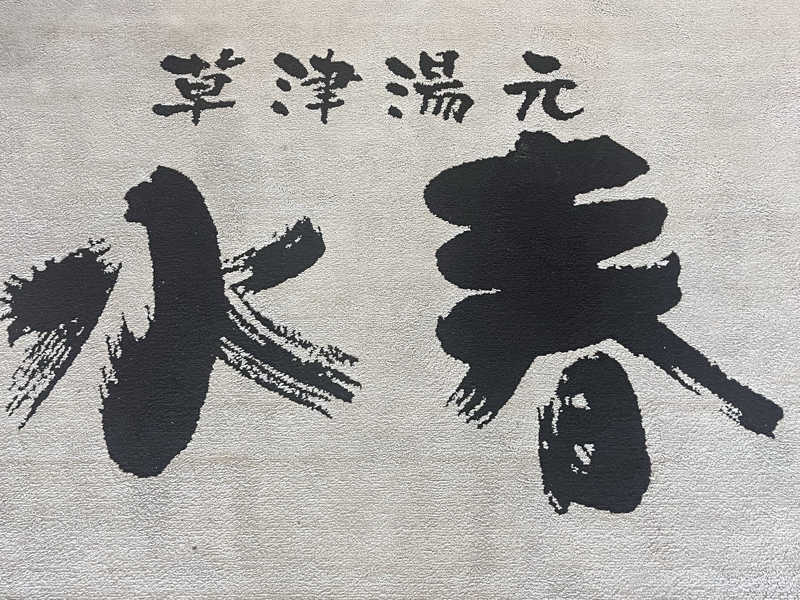 草津湯元
水春